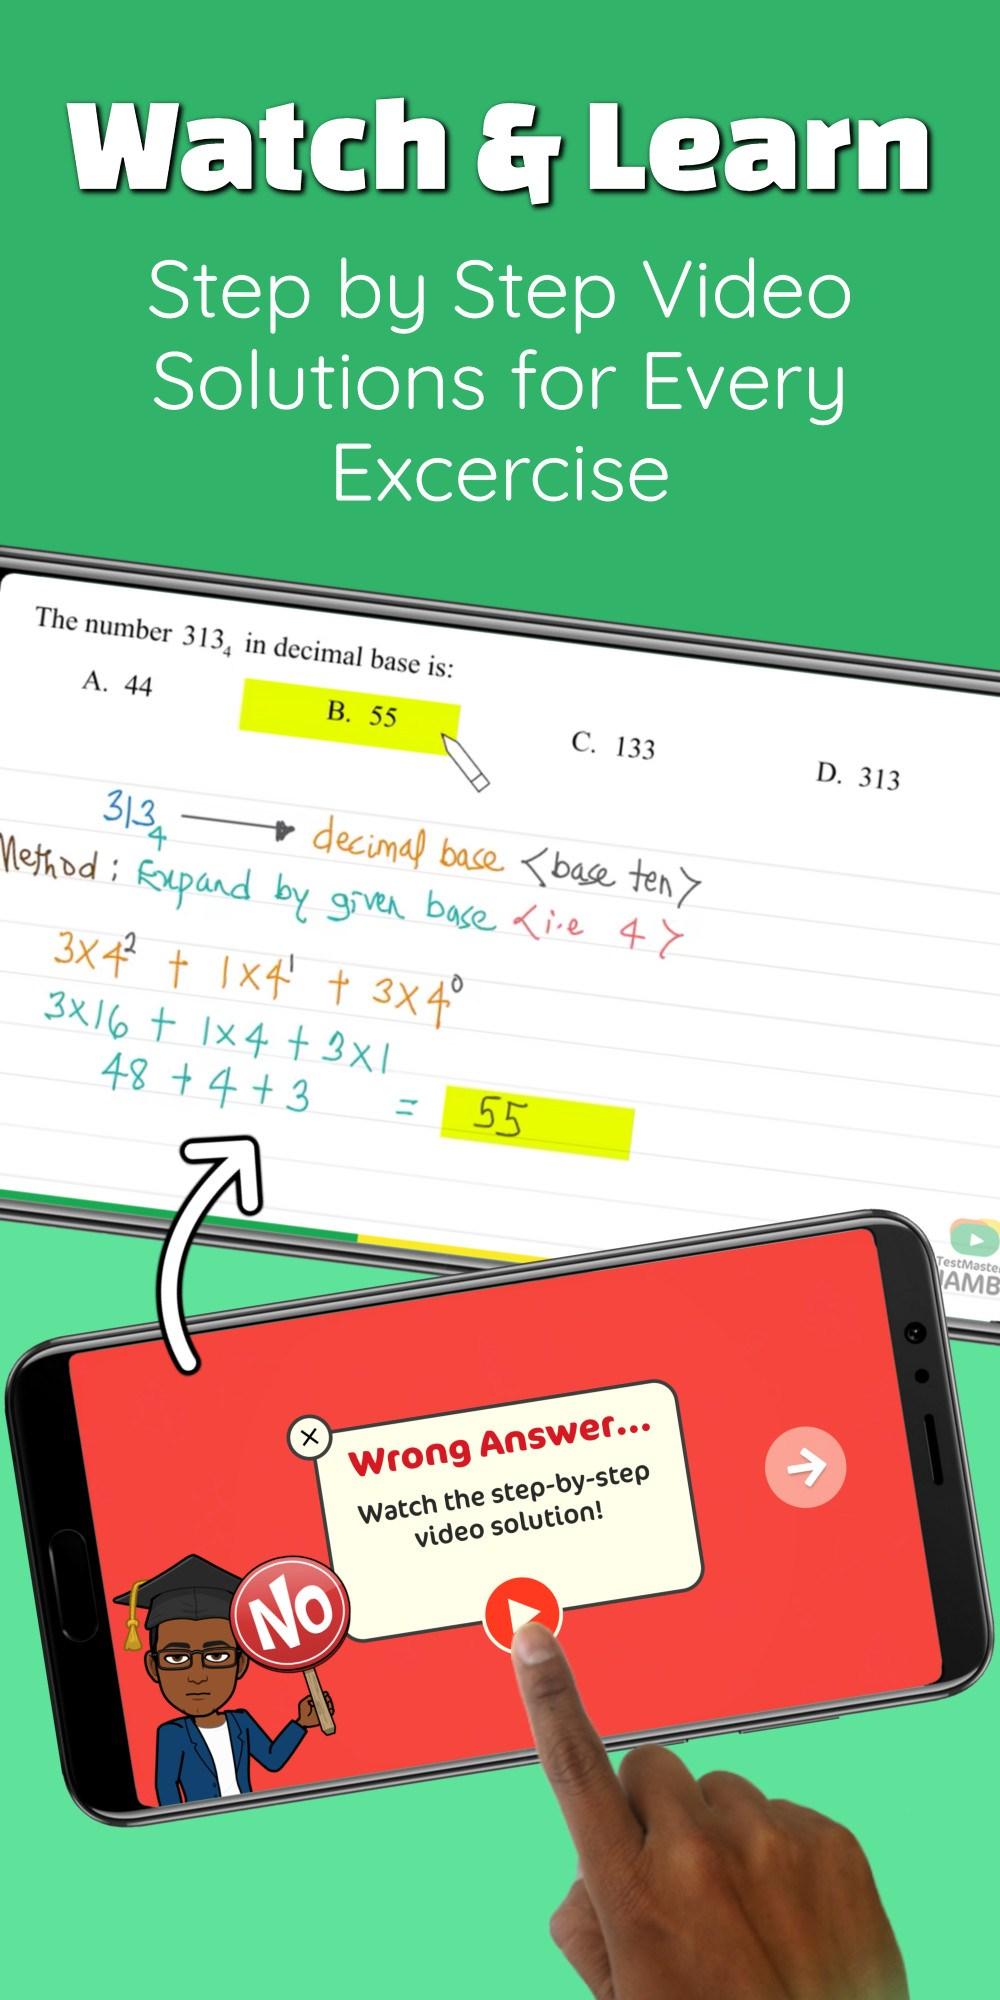 Watch & Learn
Step by Step Video
Solutions for Every
Excercise
The number 313₄ in decimal base is:
A. 44
B. 55
C. 133
D. 313
313₄ → decimal base <base ten>
Method : Expand by given base <i.e 4>
3×4² + 1×4¹ + 3×4⁰
3×16 + 1×4 + 3×1
48 + 4 + 3 = 55
TestMaster
JAMB
Wrong Answer...
Watch the step-by-step
video solution!
No